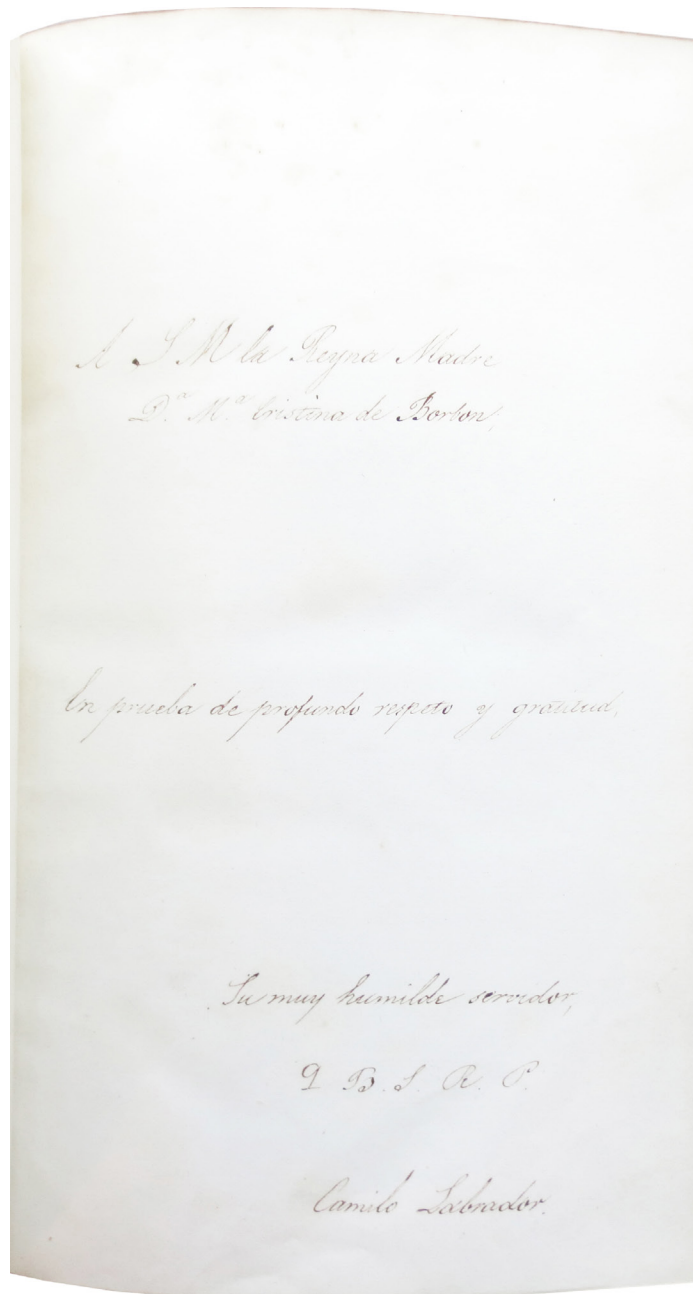 A S M la Reyna Madre
D.ª M.ª Cristina de Borbon,
En prueba de profundo respeto y gratitud,
Su muy humilde servidor,
q B. S. R. P.
Camilo Labrador.